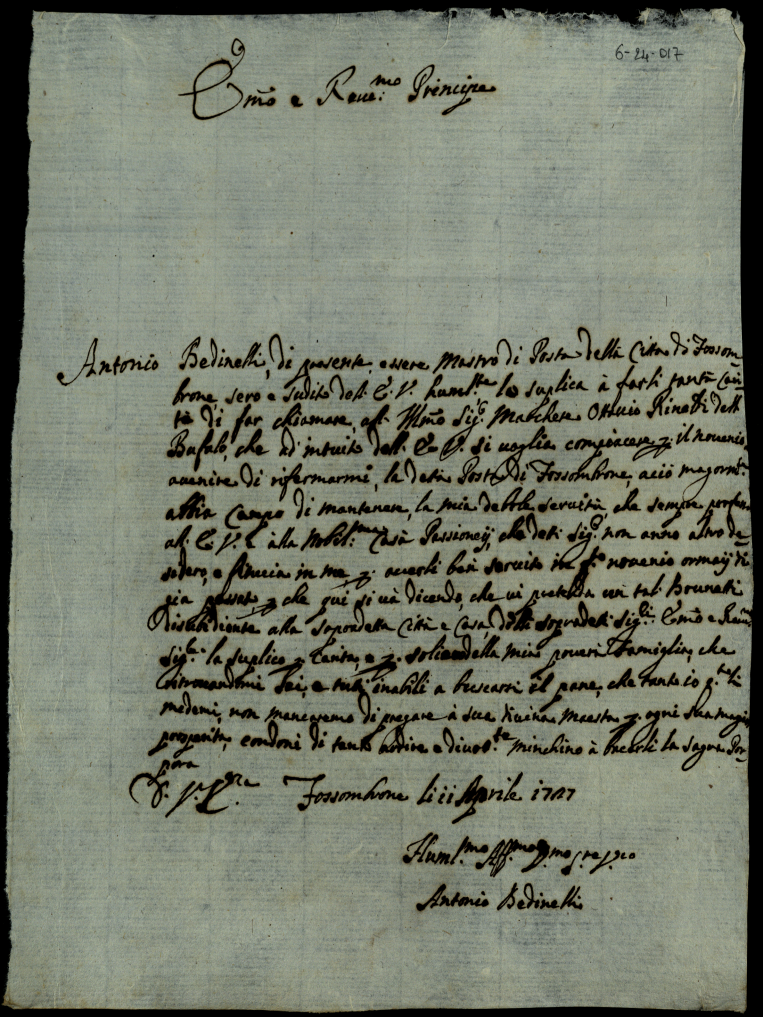 6-24-017
Emõ e Reue.mo Principe
Antonio Bedinelli, di presente essere Mastro di Posta della Citta di Fossom=
brone, sero e sudito dell' E. V. hum.te la suplica à farli tanta Cari=
tà di far chiamare, all' Ill'mo Sig.r Marchese Ottauio Rinaldi dell
Bufalo, che ad intuito dell' E. V. si uoglia compiacere p. il nouenio,
auenire di rifermarmi, la detta Posta di Fossombrone, aciò magorm.te
abbia Campo di mantenere, la mia debole seruitù, che sempre
all' E. V. e alla Nobil.ma Casa Passioneij, che deti Sig.ri non anno altro de=
in me p. auerli ben seruito in q.to nouenio ormaij di
già passato, p. che qui si uà dicendo, che ui pretenda un tal Brunetti
alla sopradetta Città e Casa, delli sopradeti Sig.ri. Emõ e Reu.mo
Sig.re la suplico p. Carità, e p. della mia pouera Famiglia, che
ritrouandomi sei, e tuti inabili a buscarsi il pane, che tanto io q.to li
medemi, non mancaremo di pregare à Sua diuina Maestà p. ogni sua magior
prosperità, condoni di tanto ardire e diuot.te m'inchino à baciarli la Sagra Por=
pora
D. V. E.
Fossombrone li 11 Aprile 1727
Hum.mo
Antonio Bedinelli